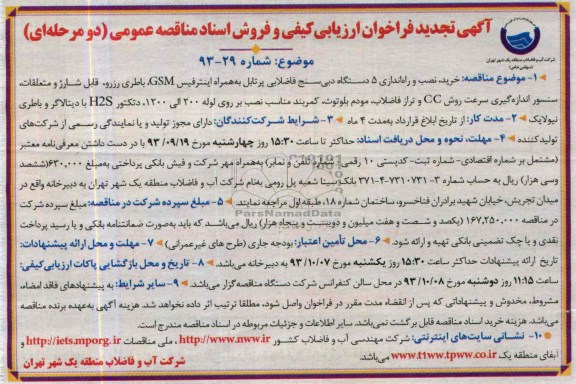 آگهی تجدید فراخوان ارزیابی کیفی و فروش اسناد مناقصه عمومی (دو مرحله‌ای)
شرکت آب و فاضلاب منطقه یک شهر تهران
(سهامی خاص)
موضوع: شماره ۲۹-۹۳
۱- موضوع مناقصه: خرید، نصب و راه‌اندازی ۵ دستگاه دبی‌سنج فاضلابی پرتابل به‌همراه اینترفیس GSM، باطری رزرو، قابل شارژ و متعلقات،
سنسور اندازه‌گیری سرعت روش CC و تراز فاضلاب، مودم بلوتوث، کمربند مناسب نصب بر روی لوله ۲۰۰ الی ۱۲۰۰، دتکتور H2S با دیتالاگر و باطری
نیولایک ۲- مدت کار: از تاریخ ابلاغ قرارداد به‌مدت ۴ ماه ۳- شرایط شرکت‌کنندگان: دارای مجوز تولید و یا نمایندگی رسمی از شرکت‌های
تولیدکننده ۴- مهلت، نحوه و محل دریافت اسناد: حداکثر تا ساعت ۱۵:۳۰ روز چهارشنبه مورخ ۹۳/۰۹/۱۹ با در دست داشتن معرفی‌نامه معتبر
(مشتمل بر شماره اقتصادی- شماره ثبت- کدپستی ۱۰ رقمی، تلفن و نمابر) به‌همراه مهر شرکت و فیش بانکی پرداختی به‌مبلغ ۶۳۰,۰۰۰ (ششصد
وسی هزار) ریال به حساب شماره ۳-۷۳۱۰۷۳۱-۴-۳۷۱ بانک سینا شعبه پل رومی به‌نام شرکت آب و فاضلاب منطقه یک شهر تهران به دبیرخانه واقع در
میدان تجریش، خیابان شهید برادران فناخسرو، ساختمان شماره ۱۸، طبقه اول مراجعه نمایند. ۵- مبلغ سپرده شرکت در مناقصه: مبلغ سپرده شرکت
در مناقصه ۱۶۷,۲۵۰,۰۰۰ (یکصد و شصت و هفت میلیون و دویست و پنجاه هزار) ریال می‌باشد که باید به‌صورت ضمانتنامه بانکی و یا رسید پرداخت
نقدی و یا چک تضمینی بانکی تهیه و ارائه شود. ۶- محل تأمین اعتبار: بودجه جاری (طرح های غیرعمرانی) ۷- مهلت و محل ارائه پیشنهادات:
تاریخ ارائه پیشنهادات حداکثر ساعت ۱۵:۳۰ روز یکشنبه مورخ ۹۳/۱۰/۰۷ به دبیرخانه می‌باشد. ۸- تاریخ و محل بازگشایی پاکات ارزیابی کیفی:
ساعت ۱۱:۱۵ روز دوشنبه مورخ ۹۳/۱۰/۰۸ در محل سالن کنفرانس شرکت دستگاه مناقصه‌گزار می‌باشد. ۹- سایر شرایط: به پیشنهادهای فاقد امضاء،
مشروط، مخدوش و پیشنهاداتی که پس از انقضاء مدت مقرر در فراخوان واصل شود، مطلقا ترتیب اثر داده نخواهد شد. هزینه آگهی به‌عهده برنده مناقصه
می‌باشد. هزینه خرید اسناد مناقصه قابل برگشت نمی‌باشد. سایر اطلاعات و جزئیات مربوطه در اسناد مناقصه مندرج است.
۱۰- نشانی سایت‌های اینترنتی: شرکت مهندسی آب و فاضلاب کشور http://www.nww.ir، ملی مناقصات http://iets.mporg.ir و
آبفای منطقه یک www.t1ww.tpww.co.ir می‌باشد.
شرکت آب و فاضلاب منطقه یک شهر تهران
ParsNamadData